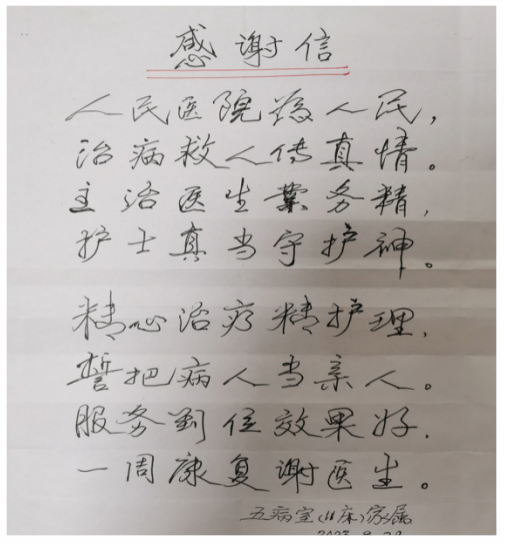 感谢信
人民医院为人民，
治病救人传真情。
主治医生業务精，
护士真当守护神。
精心治疗精护理，
誓把病人当亲人。
服务到位效果好，
一周康复谢医生。
五病室(11床)家属